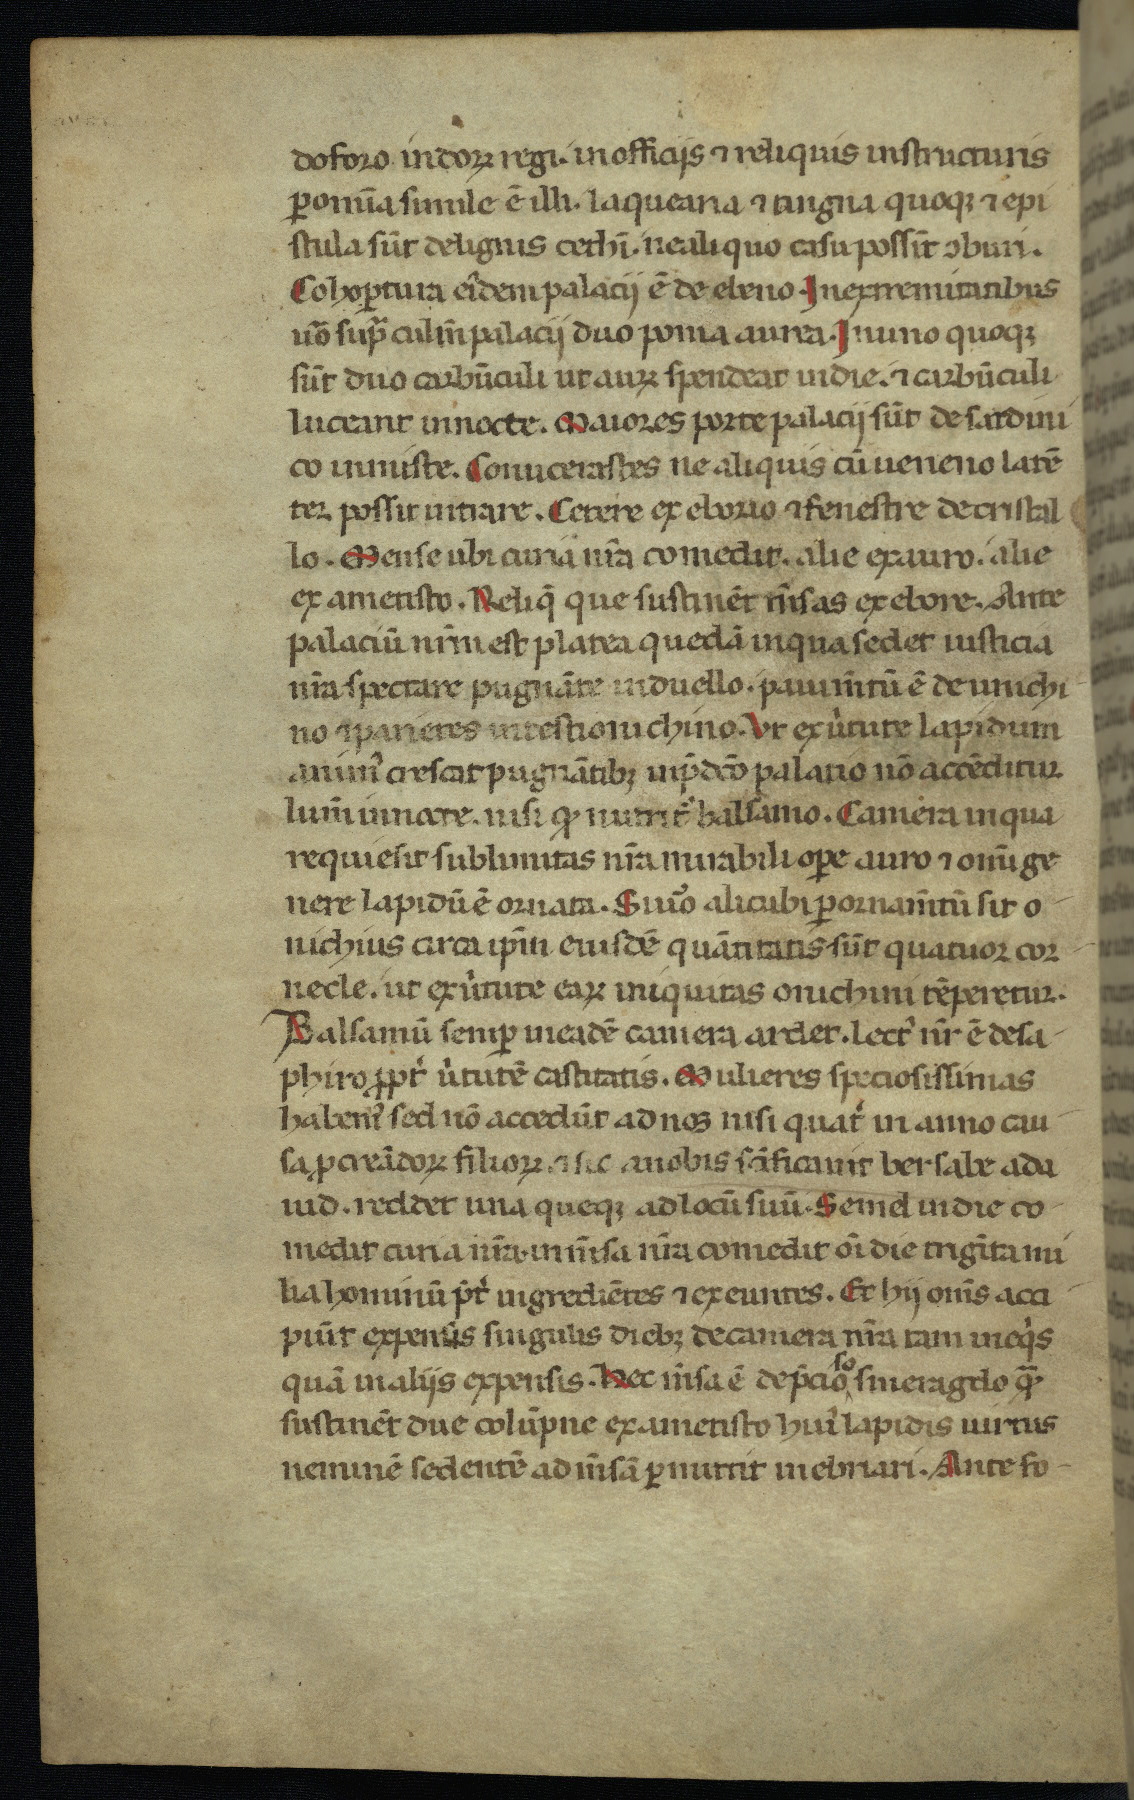 doforo indoꝝ regi. in officijs ⁊ reliquis instructuris
ꝑ omīa simile ē illi. laquearia ⁊ tingna quoqꝫ ⁊ epi
stula sūt de lignis cethī. ne aliquo casu possīt ↄburi.
Cohoꝑtura eīdem palacij ē de ebeno. In extremitatibus
uo̅ supͣ culm̅ palacij duo poma aurea. In uno quoqꝫ
sūt duo carbūculi ut auꝝ spendeat in die. ⁊ carbūculi
luceant in nocte. Maiores porte palacij sūt de sardini
co inmiste. Cornu cerastes ne aliquis cū ueneno latē
ter possit intrare. Cetere ex eborio ⁊ fenestre de cristal
lo. Mense ubi curia nr̅a comedit. alie ex auro. alie
ex ametisto. Reliq̄ que sustinēt m̅sas ex ebore. Ante
palaciū nr̅m est platea quedā in qua sedet iusticia
nr̅a spectare pugnāte in duello. pauim̅tū ē de unichi
no ⁊ parietes intestionichino. Ut ex uͥtute lapidum
animꝰ crescat pugnātibꝫ in p̅dc̅o palatio nō accēditur
lum̅ in nocte. nisi qͥ nutritͬ balsamo. Camera in qua
requiesit sublimitas nr̅a mirabili oꝑe auro ⁊ om̅i ge
nere lapidū ē ornata. Si uͦo alicubi ꝑ ornam̅tū sit o
nichius circa ip̅m eiusdē quātitatis sūt quatuor cor
necle. ut ex uͥtute eaꝝ iniquitas onichini tēperetur.
Balsamū semꝑ in eadē camera ardet. lectꝰ nr̅ ē de sa
phiro ꝓptͬ uͥtutē castitatis. Mulieres speciosissimas
habemꝰ sed nō accedūt ad nos nisi quatͬ in anno cau
sa ꝓcreādoꝝ filioꝝ ⁊ sic a nobis sc̅ificant̅ bersabe a da
uid. reddet una queqꝫ ad locū suū. Semel in die co
medit curia nr̅a. in m̅sa nr̅a comedit oī die trigīta mi
lia hominū p̅tͬ ingrediētes ⁊ exeuntes. Et hij om̅s acci
piūt expensis singulis diebꝫ de camera nr̅a tam in eqͥs
quā in alijs expensis. Hec m̅sa ē de p̅cioso smeragdo qͣ̅
sustinēt due colūpne ex ametisto huiꝰ lapidis uirtus
neminē sedentē ad m̅sā ꝑmittit inebriari. Ante fo